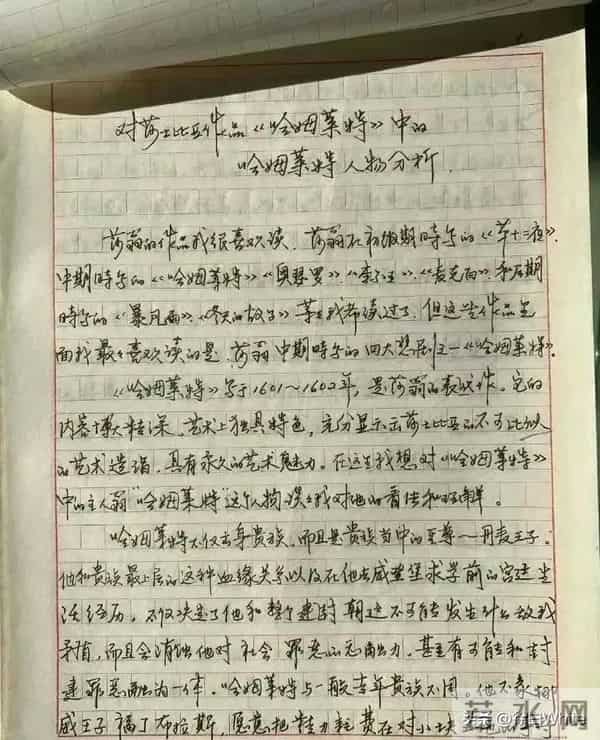 对莎士比亚作品《哈姆莱特》中的
哈姆莱特人物分析.
莎翁的作品我很喜欢读. 莎翁在初期时写的《第十二夜》.
中期时写的《哈姆莱特》《奥瑟罗》.《李尔王》.《麦克白》. 和后期
时写的《暴风雨》.《冬天的故事》等等我都读过了. 但这些作品里
面我最喜欢读的是. 莎翁中期时写的四大悲剧之一《哈姆莱特》.
《哈姆莱特》写于1601~1602年, 是莎翁的代表作. 它的
内容博大精深. 艺术上独具特色, 充分显示出莎士比亚的不可比拟
的艺术造诣, 具有永久的艺术魅力. 在这里我想对《哈姆莱特》
中的主人翁“哈姆莱特”这个人物谈谈我对他的看法和理解.
哈姆莱特不仅出身贵族. 而且是贵族当中的至尊——丹麦王子.
他和贵族最上层的这种血缘关系以及在他去威登堡求学前的宫廷生
活经历, 不仅决定了他和整个封建朝廷不可能发生什么敌我
矛盾, 而且会消蚀他对社会罪恶的洞察力. 甚至有可能和封
建罪恶融为一体. 哈姆莱特与一般青年贵族不同. 他不象挪
威王子福丁布拉斯, 愿意把精力耗费在对小块
头条 @